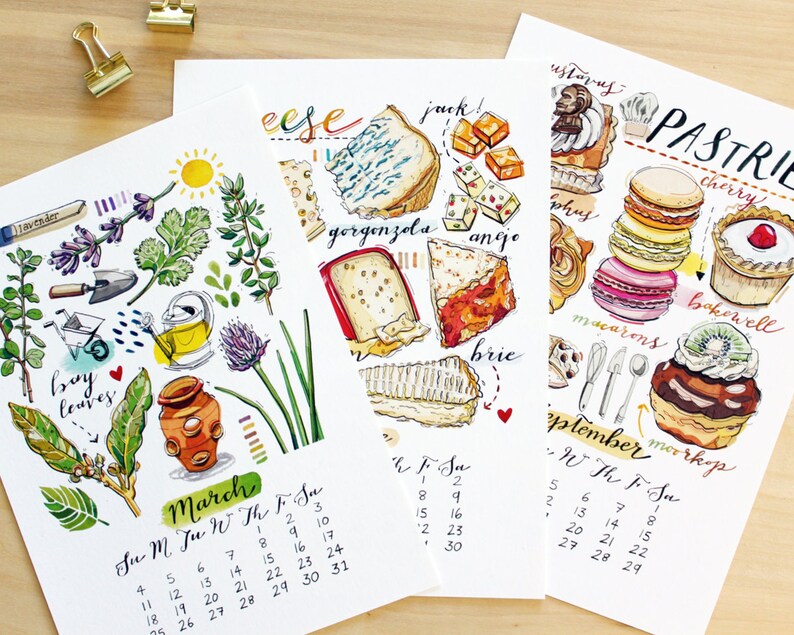 lavender
bay
leaves
March
Su M Tu W Th F Sa
1 2 3
4 5 6 7 8 9 10
11 12 13 14 15 16 17
18 19 20 21 22 23 24
25 26 27 28 29 30 31
eese
jack!
gorgonzola
anejo
brie
F Sa
1 2
8 9
15 16
22 23
29 30
ustavus
PASTRIE
cherry
phus
bakewell
macarons
September
moorkop
Tu W Th F Sa
1
5 6 7 8
12 13 14 15
20 21 22
26 27 28 29